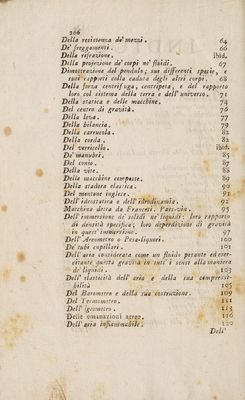 206
Della resistenza de' mezzi. 64
De' freggamenti. 66
Della rifrazione. Ibid.
Della projezione de' corpi ne' fluidi. 67
Dimostrazione del pendulo; sui differenti spazie, e
suoi rapporti colla caduta degli altri corpi. 68
Della forza centrifuga, centripeta, e del rapporto
loro col sistema della terra e dell' universo. 71
Della statica e delle macchine. 74
Del centro di gravità. 76
Della leva. 77
Della bilancia. 79
Della carrucola. 82
Della corda. 82
Del verricello. ibid.
De' manubrj. 85
Del conio. 87
Della vite. 88
Delle macchine composte. 89
Della stadera elastica. 90
Del mentano inglese. 91
Dell' idrostatica e dell' idrodinamia. 92
Macchina detta da Francesi. Passe-vin. 93
Dell' immersione de' solidi ne' liquidi: loro rapporto
di densità specifica; loro deperdizione di gravità
in quest' immersione. 97
Dell' Areometro o Pesa-liquori. 100
De' tubi capillari. 101
Dell' aria considerata come un fluido pesante ed eser-
citante questa gravità in tutt' i sensi alla maniera
de' liquidi. 103
Dell' elasticità dell' aria e della sua compressi-
bilità 105
Del Barometro e della sua costruzione. 109
Del Termometro. 111
Dell' igrometro. 113
Delle emanazioni aeree. 116
Dell' aria infiammabile. 120
Dell'